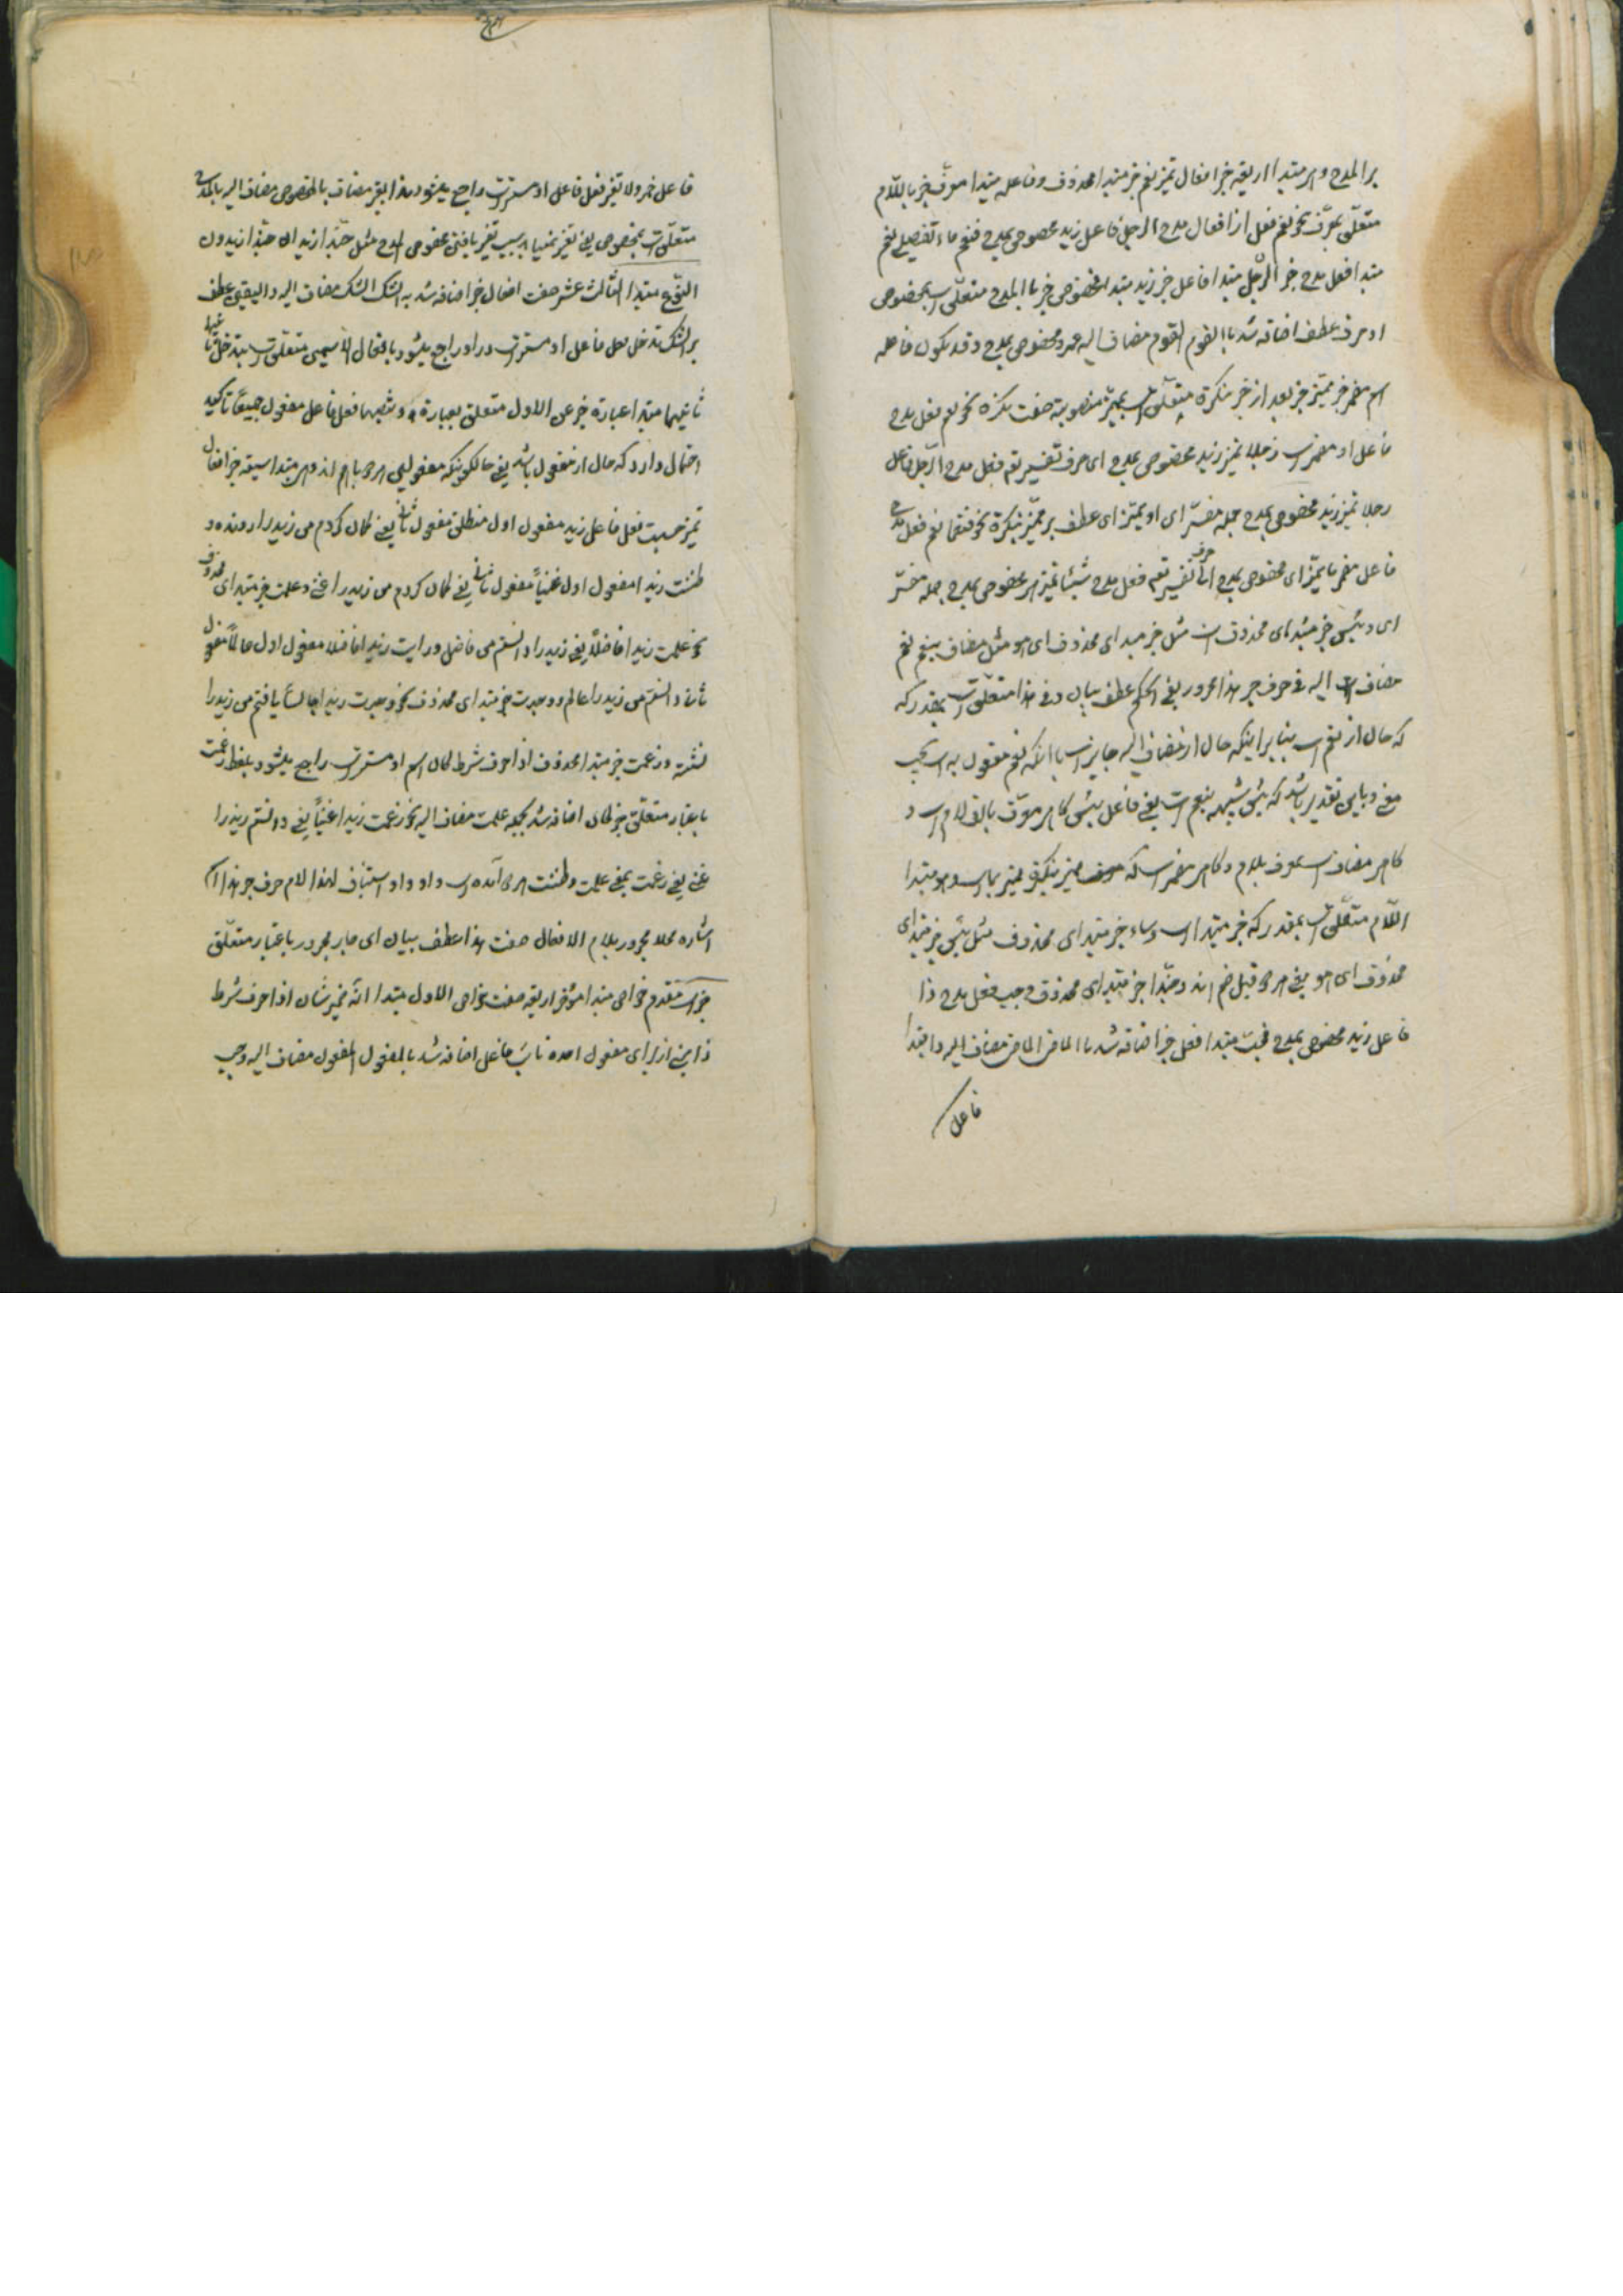 بر المدح و هی مبتدا اربعة خبر افعال تمیز نعم خبر مبتدا محذوف و فاعله مبتدا معرف خبر باللام
متعلق بمعرف نحو نعم فعل از افعال مدح الرجل فاعل زید مخصوص بمدح فنعم ماء تفصیلی نعم
مبتدا فعل مدح خبر الرجل مبتدا فاعل خبر زید مبتدا المخصوص خبر با المدح متعلق است بمخصوص
او حرف عطف اضافه شد با القوم القوم مضاف الیه عمرو مخصوص بمدح و قد یکون فاعله
اسم مضمر خبر ممیز خبر بعد از خبر بنکرة متعلق است بممیز منصوبة صفت نکره نحو نعم فعل مدح
فاعل او مضمر است رجلا تمیز زید مخصوص بمدح ای حرف تفسیر نعم فعل مدح الرجل فاعل
رجلا تمیز زید مخصوص بمدح جمله مفسر ای او ممیز ای عطف بر ممیز بنکرة نحو فنعما نعم فعل مدح
فاعل مضمر ما تمیز ای مخصوص بمدح ای حرف تفسیر نعم فعل مدح شیئا تمیز هی مخصوص بمدح جمله مفسر
ای و بئس خبر مبتدای محذوف است مثل خبر مبتدای محذوف ای هو مثل مضاف بنعم نعم
مضاف الیه فی حرف جر هذا مجرور یعنی الحکم عطف بیان و فی هذا متعلق است بمقدر که
که حال از نعم است بنا بر اینکه حال از مضاف الیه جایز است با آنکه نعم مفعول به است بحسب
معنی و باین تقدیر باشد که بئس شبیه بنعم است یعنی فاعل بئس کاهی معرف بالف و لام است و
کاهی مضاف است بمعرف بلام و کاهی مضمر است که ممیز بنکره و ممیز بما است و هو مبتدا
اللام متعلق است بمقدر که خبر مبتدا است و ساء خبر مبتدای محذوف مثل بئس خبر مبتدای
محذوف ای هو یعنی هر دو قبل ضم اند و حبذا خبر مبتدای محذوف و حب فعل مدح ذا
فاعل زید مخصوص بمدح فحب مبتدا فعل خبر اضافه شد با الماضی الماضی مضاف الیه و ذا مبتدا
فاعل
فاعل خبر و لا یتغیر فعل فاعل او مستتر است راجع میشود بذا بتغیر مضاف بالمخصوص مضاف الیه بالمدح
متعلق است بمخصوص یعنی تغیر نمییابد بسبب تغیر یافتن مخصوص المدح مثل حبذا زیدان حبذا زیدون
النوع مبتدا الثالث عشر صفت افعال خبر اضافه شد به الشک الشک مضاف الیه و الیقین عطف
بر الشک تدخل فعل فاعل او مستتر است در او راجع میشود بافعال الاسمین متعلق است بتدخل
ثانیهما مبتدا عبارة خبر عن الاول متعلق بعبارة و تنصبهما فعل فاعل مفعول جمیعا تاکید
احتمال دارد که حال از مفعول باشد یعنی حالکونیکه مفعولین هر دو باهم اند و هی مبتدا سبعة خبر افعال
تمیز حسبت فعل فاعل زید مفعول اول منطلق مفعول ثانی یعنی کمان کردم من زید را رونده و
ظننت زیدا مفعول اول غنیا مفعول ثانی یعنی کمان کردم من زید را غنی و علمت خبر مبتدای محذوف
نحو علمت زیدا فاضلا یعنی زید را دانستم من فاضل و رایت زیدا فاضلا مفعول اول عالما مفعول
ثانی دانستم من زید را عالم و وجدت خبر مبتدای محذوف نحو وجدت زیدا جالسا یافتم من زید را
نشسته و زعمت خبر مبتدا محذوف اذا حرف شرط کان اسم او مستتر است راجع میشود بلفظ زعمت
باعتبار متعلق خبر کان اضافه شد بجمله علمت مضاف الیه نحو زعمت زیدا غنیا یعنی دانستم زید را
غنی یعنی زعمت بمعنی علمت و ظننت هر دو آمده است و او واو استیناف لهذا لام حرف جر هذا
اشاره محلا مجرور بلام الافعال صفت هذا عطف بیان ای جار مجرور باعتبار متعلق
خبر است مقدم خواص مبتدا مؤخر اربعة صفت خواص الاول مبتدا انه ضمیر شان اذا حرف شرط
ذا بنی از برای مفعول احده نایب فاعل اضافه شد بالمفعول المفعول مضاف الیه وجب